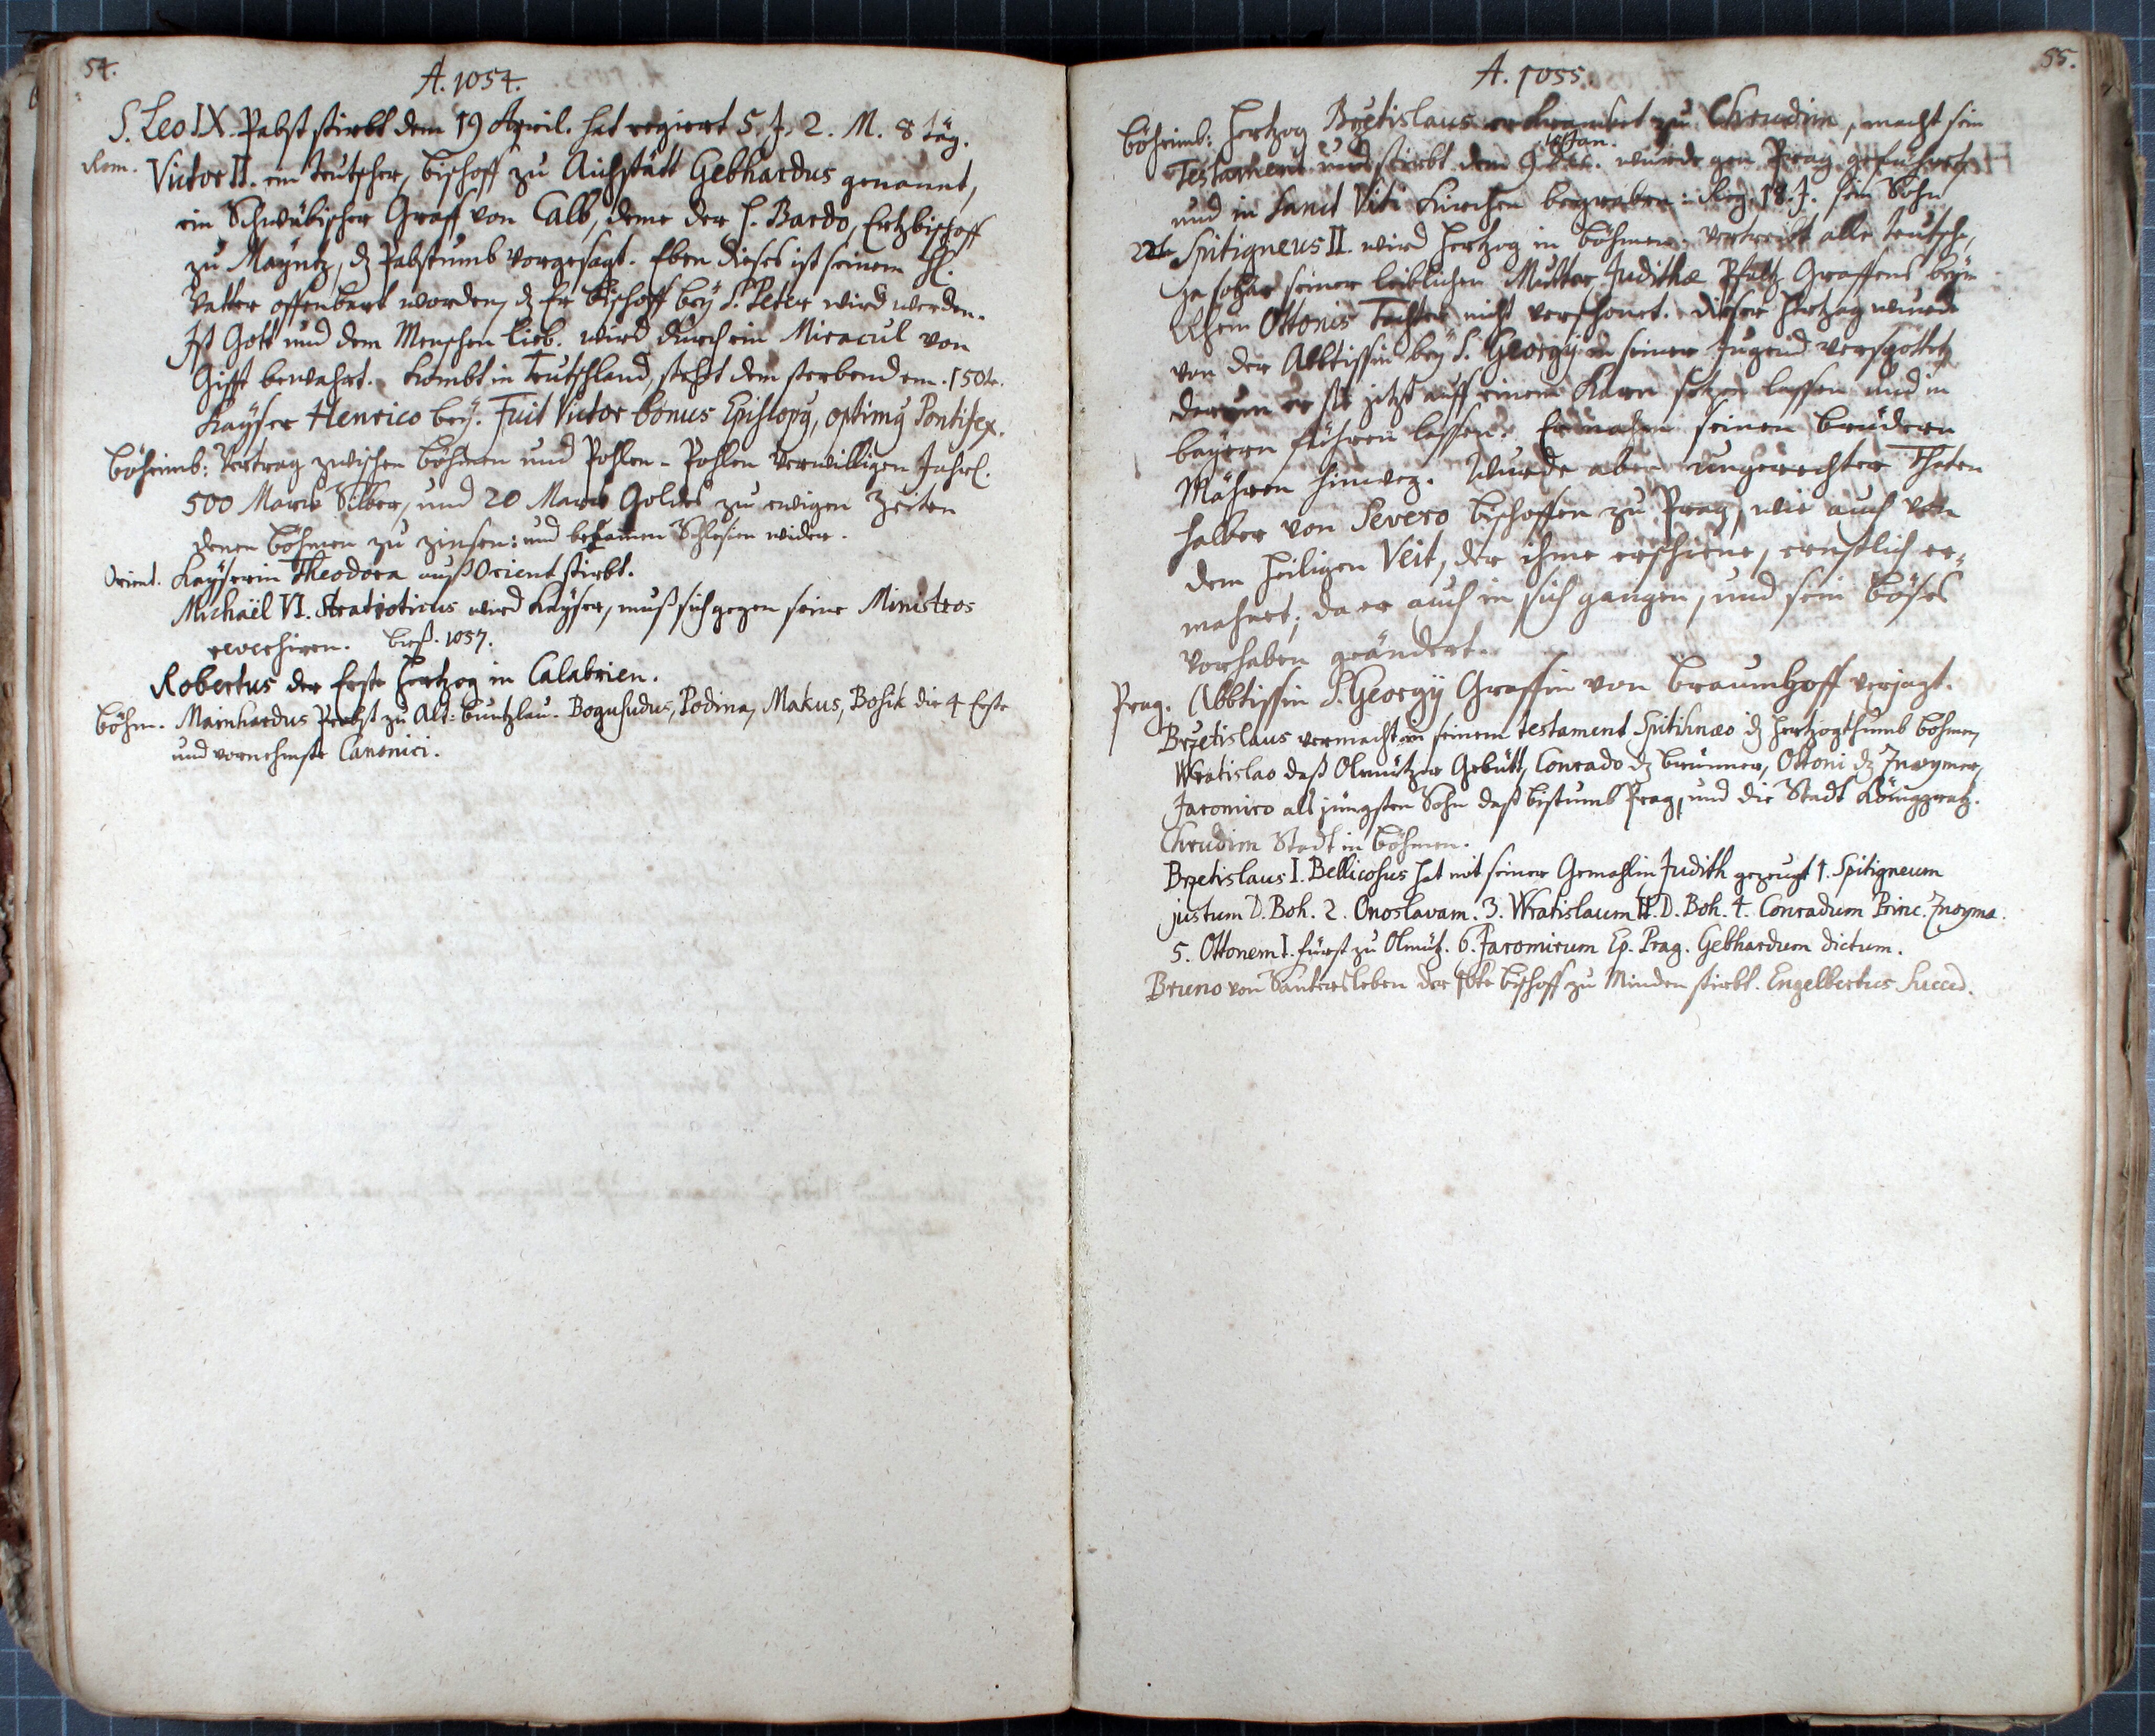 54.
A. 1054.
S. Leo IX. Pabst stirbt dem 19 April. hat regiert 5. J. 2. M. 8 täg.
Rom. Victor II. ein teutscher, bischoff zu Aichstätt Gebhardus genannt,
ein Schwäbischer Graff von Calb, deme der H. Bardo, Ertzbischoff
zu Mayntz, dz Pabstumb vorgesagt. Eben dieses ist seinem
Vatter offenbart worden, dz Er bischoff beÿ S. Peter wird werden.
Ist Gott und dem Menschen lieb. wird durch ein Miracul von
Gifft bewahrt. kombt in Teutschland, stehet dem sterbend
Kaÿser Henrico beÿ. Fuit Victor bonus Episcopus, optimus Pontifex.
böheimb: Vertrag zwischen böhmen und Pohlen. Pohlen verwilligen Jahrl.
500 Marck Silber, und 20 Marck Goldes zu ewigen Zeiten
denen böhmen zu zinsen: und bekamen Schlesien wider.
Orient. Kaÿserin Theodora auß Orient stirbt.
Michaël VI. Stratioticus wird Kaÿser, muß sich gegen seine Ministros
biß. 1057.
Robertus der Erste Hertzog in Calabrien.
böhm. Mainhardus Probst zu Alt-buntzlau. Bogusudus, Podina, Makus, Bosik die 4 Erste
und vornehmste Canonici.
55.
A. 1055.
böheimb: Hertzog Bržetislaus erkrancket zu Chrudim, macht sein
Jan.
Testament und stirbt den 9 wurde gen Prag geführet,
und in Sanct Viti Kirchen begraben: Reg. 18. J. sein Sohn
Spitigneus II. wird Hertzog in böhmen. vertreibt alle teutsche,
ja sogar seiner leiblichen Mutter Judithæ Pfaltz Graffens beÿm
Rhein Ottonis Tochter nicht verschonet. dieser Hertzog wurde
von der Abbtissin beÿ S. Georgij in seiner Jugend verspottet,
darum er sie jetzt auff einen Karn setzen lassen und in
baÿern führen lassen. Er nahm seinen brüdern
Mähren hinweg. Wurde aber ungerechter Thaten
halber von Severo bischoffen zu Prag, wie auch von
dem heiligen Veit, der ihme erschiene, ernstlich er-
mahnet; da er auch in sich gangen, und sein böses
vorhaben geändert.
Prag. Abbtissin S. Georgij Graffin von braumhoff verjagt.
Bržetislaus vermacht in seinem testament Spitihnæo dz Hertzogthumb böhmen,
Wratislao daß Olmützer Gebütt, Conrado dz brünner, Ottoni dz Znoymer,
Jaromiro als jüngsten Sohn daß bistumb Prag, und die Stadt Königgratz.
Chrudim Stadt in böhmen.
Bržetislaus I. Bellicosus hat mit seiner Gemahlin Judith gezeugt 1. Spitigneum
justum D. Boh. 2. Onoslavam. 3. Wratislaum II. D. Boh. 4. Conradum Princ. Znoyma.
5. Ottonem I. fürst zu Olmütz. 6. Jaromirum Ep. Prag. Gebhardum dictum.
Bruno von Santersleben der bischoff zu Minden stirbt. Engelbertus Succed.